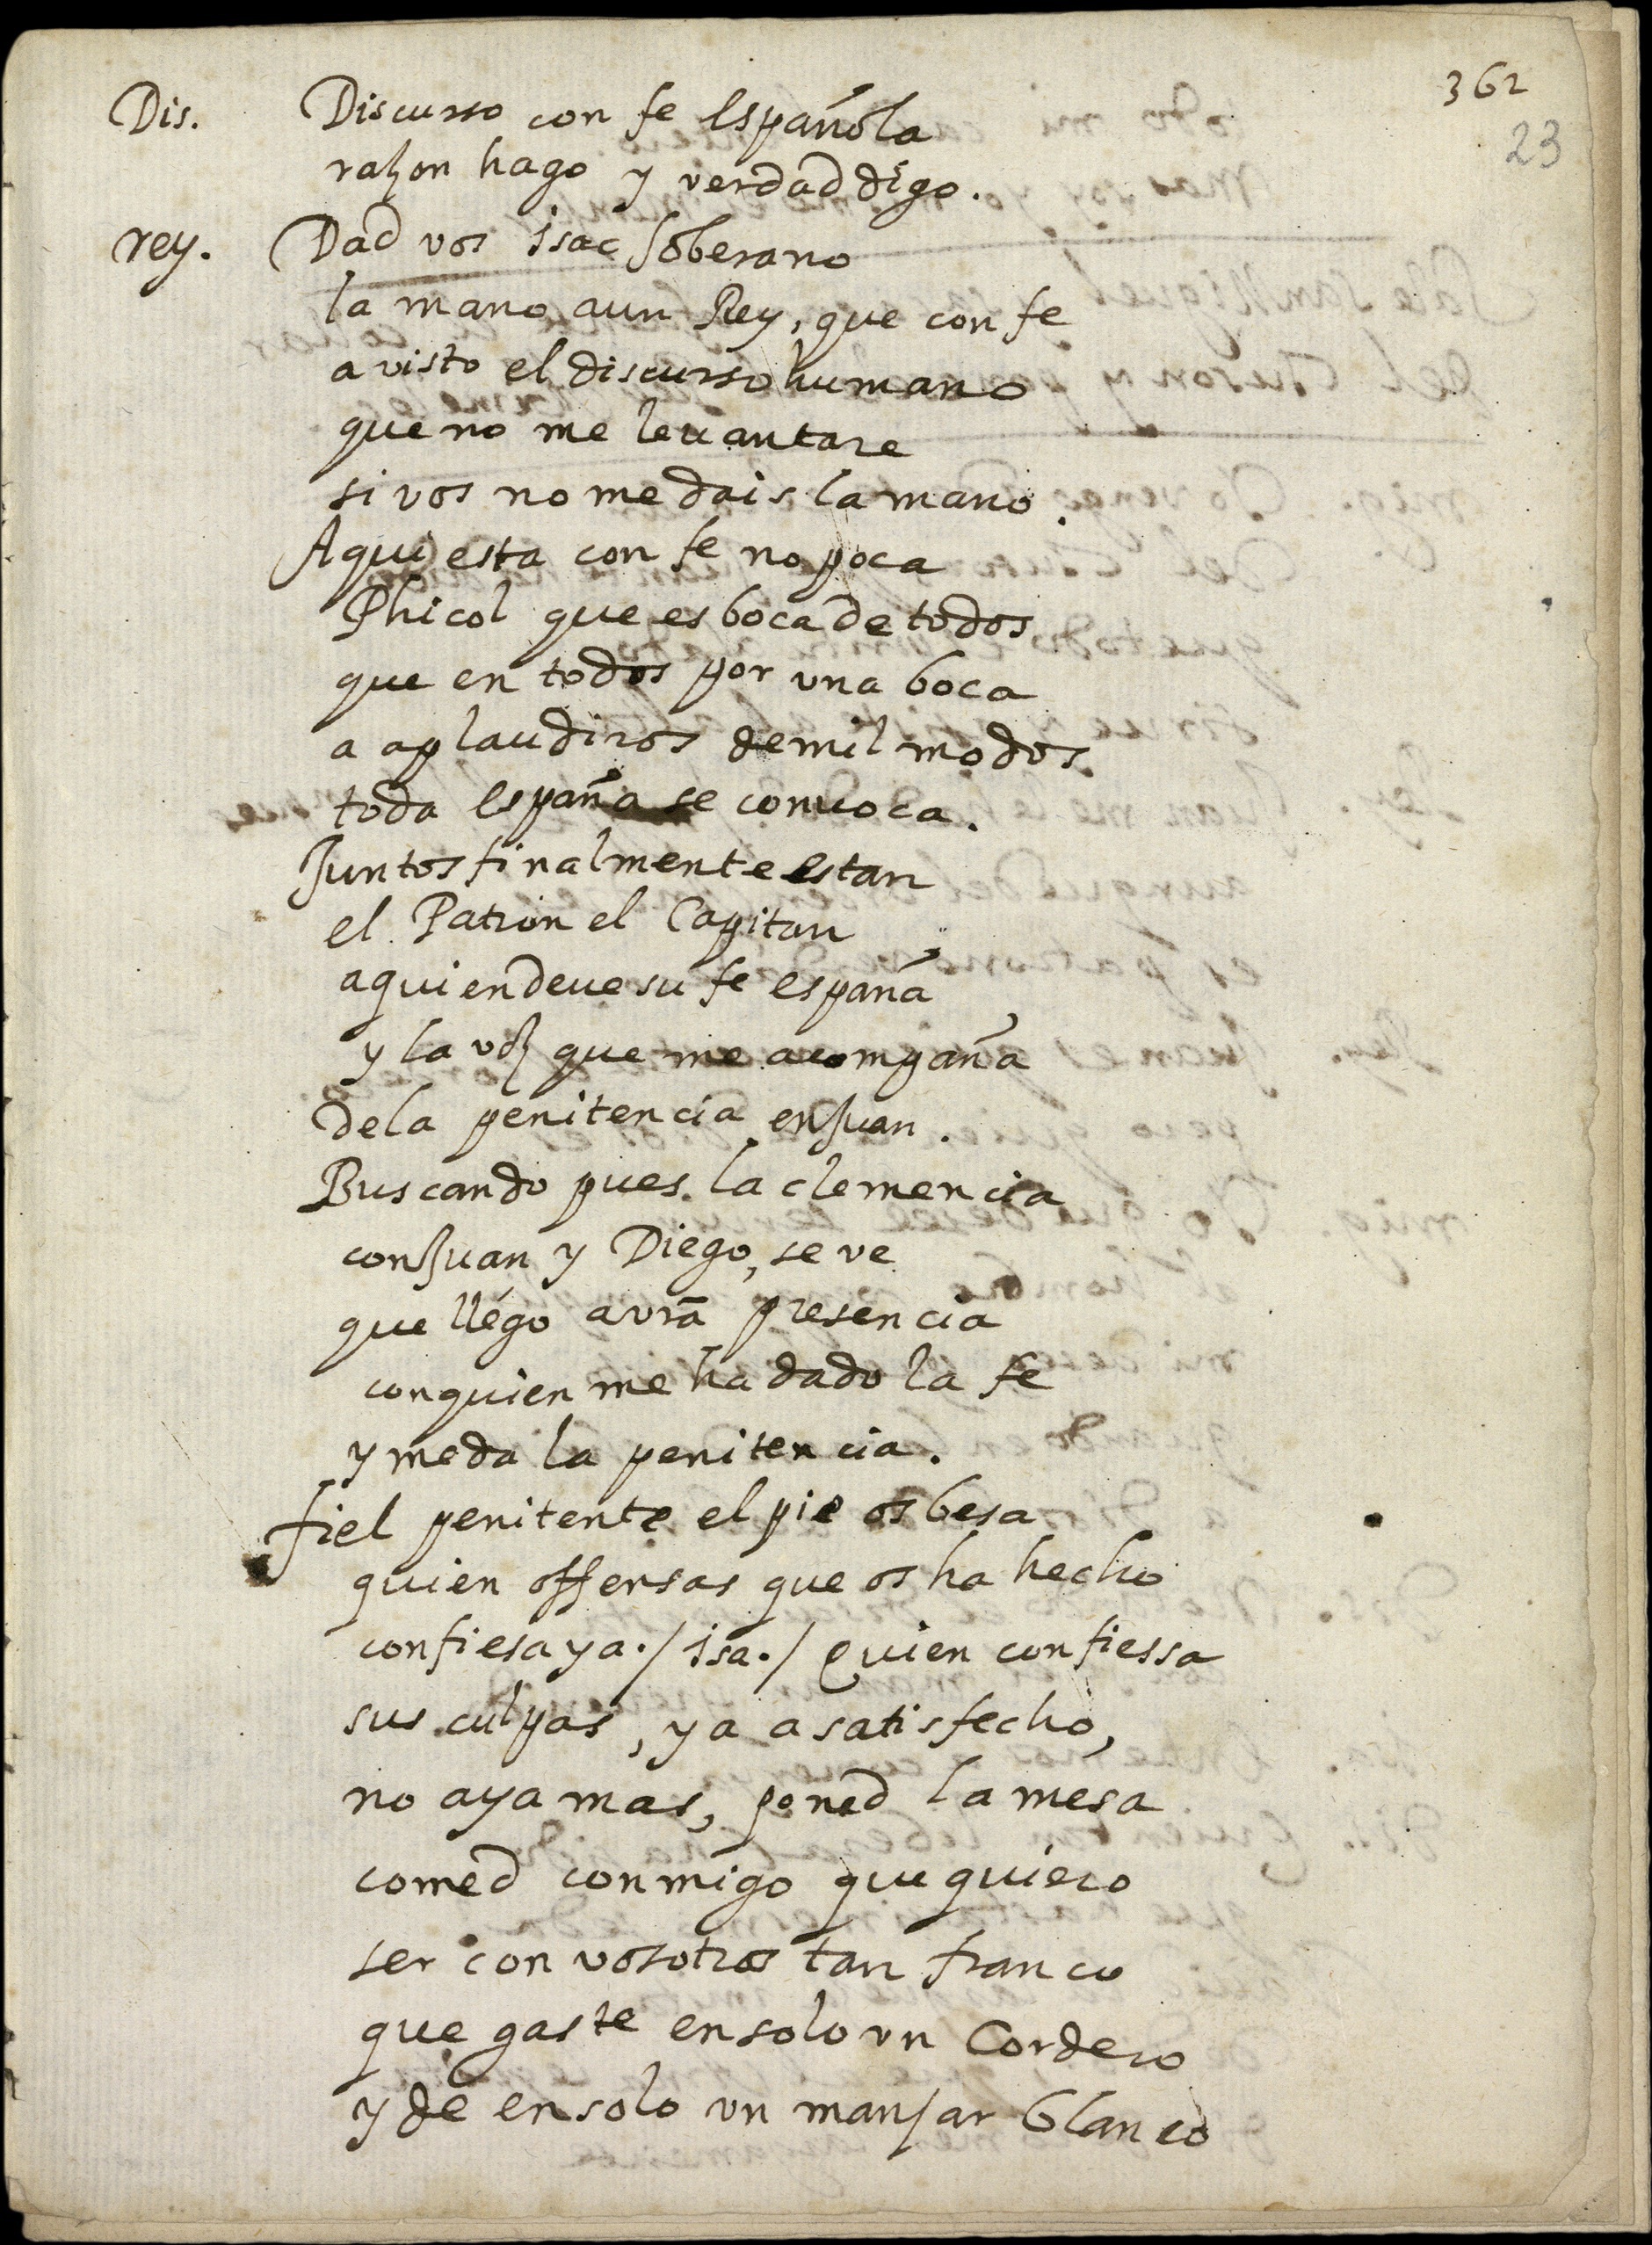 362
23
Dis. Discurso con fe española
razon hago y verdad digo.
rey. Dad vos isac soberano
la mano aun Rey, que con fe
a visto el discurso humano
que no me leuantare
si vos no me dais la mano.
Aqui esta con fe no poca
Phicol que es boca de todos
que en todos por vna boca
a aplaudiros de mil modos
toda españa se conuoca.
Juntos finalmente estan
el Patron el Capitan
aquien deue su fe españa
y la voz que me acompaña
dela penitencia en Juan.
Buscando pues la clemencia
con Juan y Diego, se ve
que llego a vrã presencia
con quien me ha dado la fe
y me da la penitencia.
fiel penitente el pie os besa
quien offensas que os ha hecho
confiesa ya./ isa./ Quien confiessa
sus culpas, ya a satisfecho,
no aya mas, poned la mesa
comed conmigo que quiero
ser con vosotros tan franco
que gaste en solo vn Cordero
y de en solo vn manjar blanco